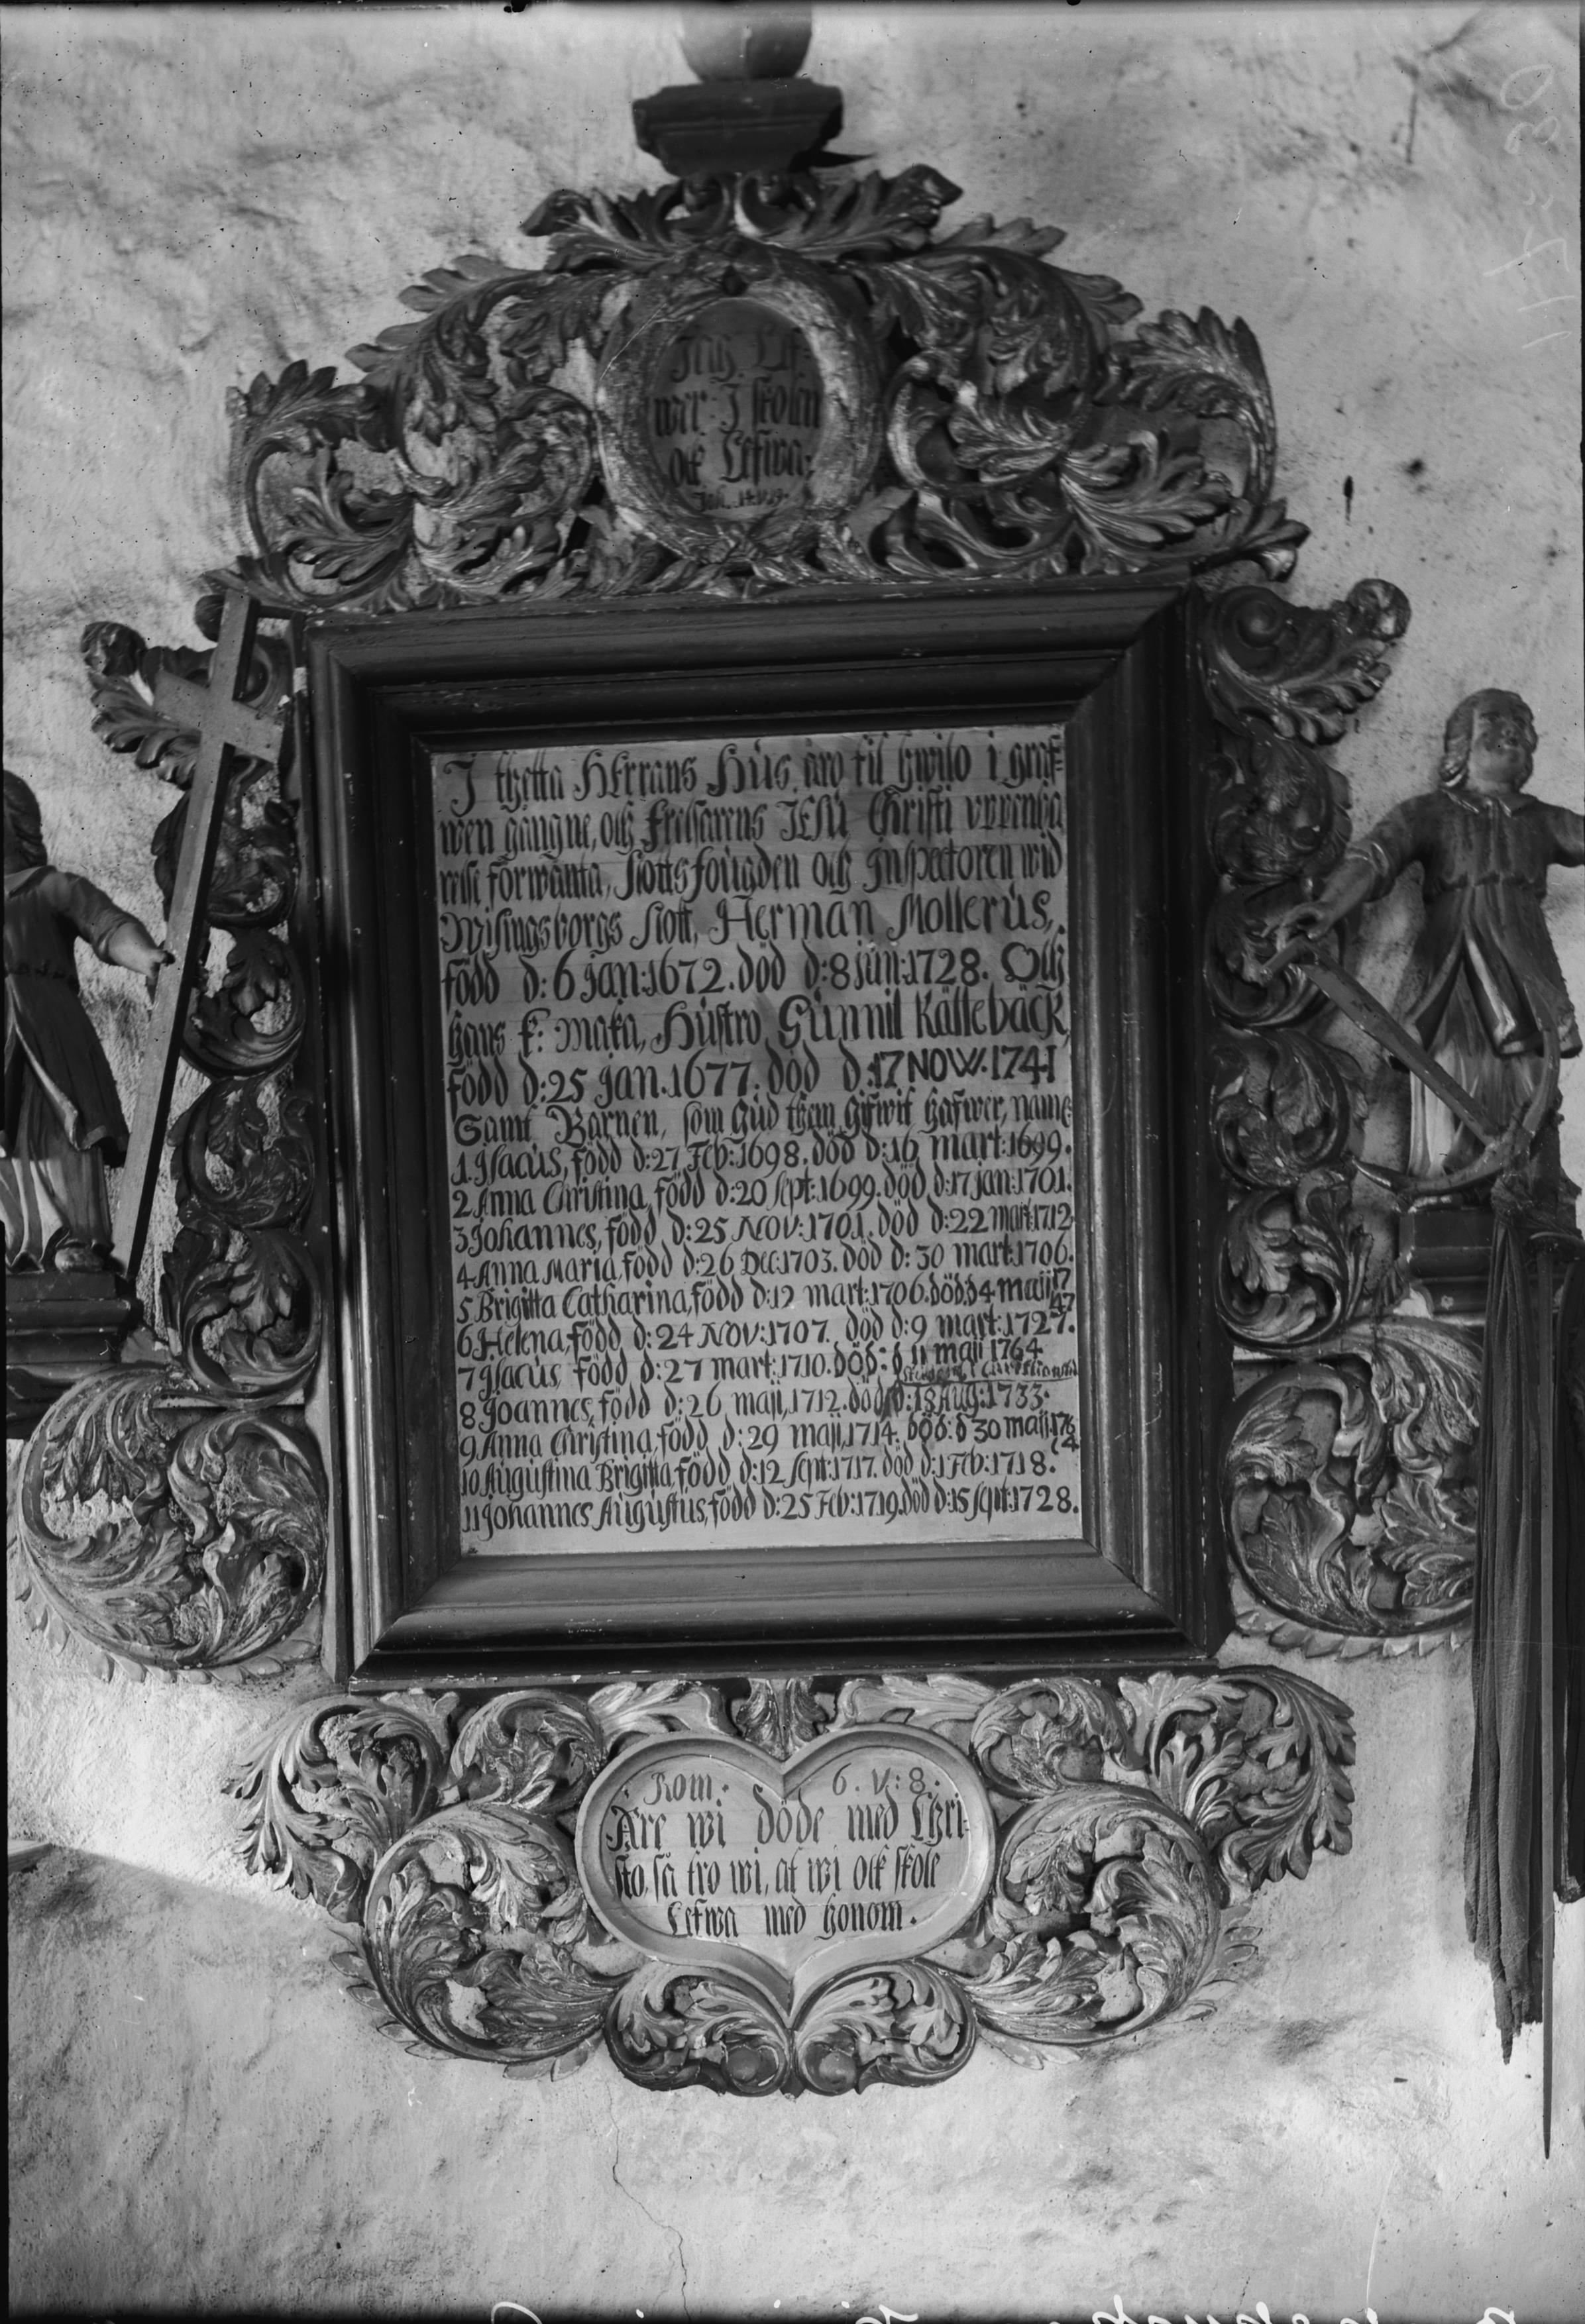 Jag Lef-
wer: I skolen
ock Lefwa.
Joh. 14. v. 19.
I thetta HErrans Hus äro til hwilo i graf-
wen gångne, och Frelsarens JESU Christi vppenba
relse förwänta, Slottsfougden och Inspectoren wid
Wisingsborgs Slott, Herman Mollerus,
född d: 6 Jan: 1672. död d: 8 Jun: 1728. Och
hans k: Maka, Hustro Gunnil Källebäck,
född d: 25 Jan. 1677. död d. 17 NOW. 1741
Samt Barnen, som Gud them gifwit hafwer, naml:
1 Isacus, född d: 27 Feb: 1698. död d: 16 mart: 1699.
2 Anna Christina, född d: 20 Sept: 1699. död d: 17 jan: 1701.
3 Johannes, född d: 25 NOV: 1701. död d: 22 mart: 1712
4 Anna Maria, född d: 26 Dec: 1703. död d: 30 mart: 1706.
5 Brigitta Catharina, född d: 12 mart: 1706. död. d 4 maii 17
47
6 Helena, född d: 24 NOV: 1707. död d: 9 mart: 1727.
7 Isacus född d: 27 mart: 1710. död: d 11 maii 1764
8 Joannes, född d: 26 maji, 1712. död d: 18 Aug: 1733.
9 Anna Christina, född d: 29 maji, 1714. död: d 30 maii 176
4
10 Augustina Brigitta, född d: 12 Sept: 1717. död d: 1 Feb: 1718.
11 Johannes Augustus, född d: 25 Feb: 1719. död d: 15 Sept: 1728.
Rom. 6. v: 8.
Äre wi döde med Chri-
sto, så tro wi, at wi ock skole
Lefwa med honom.